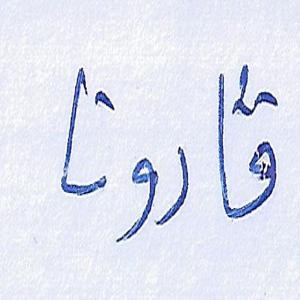 ڨارونا